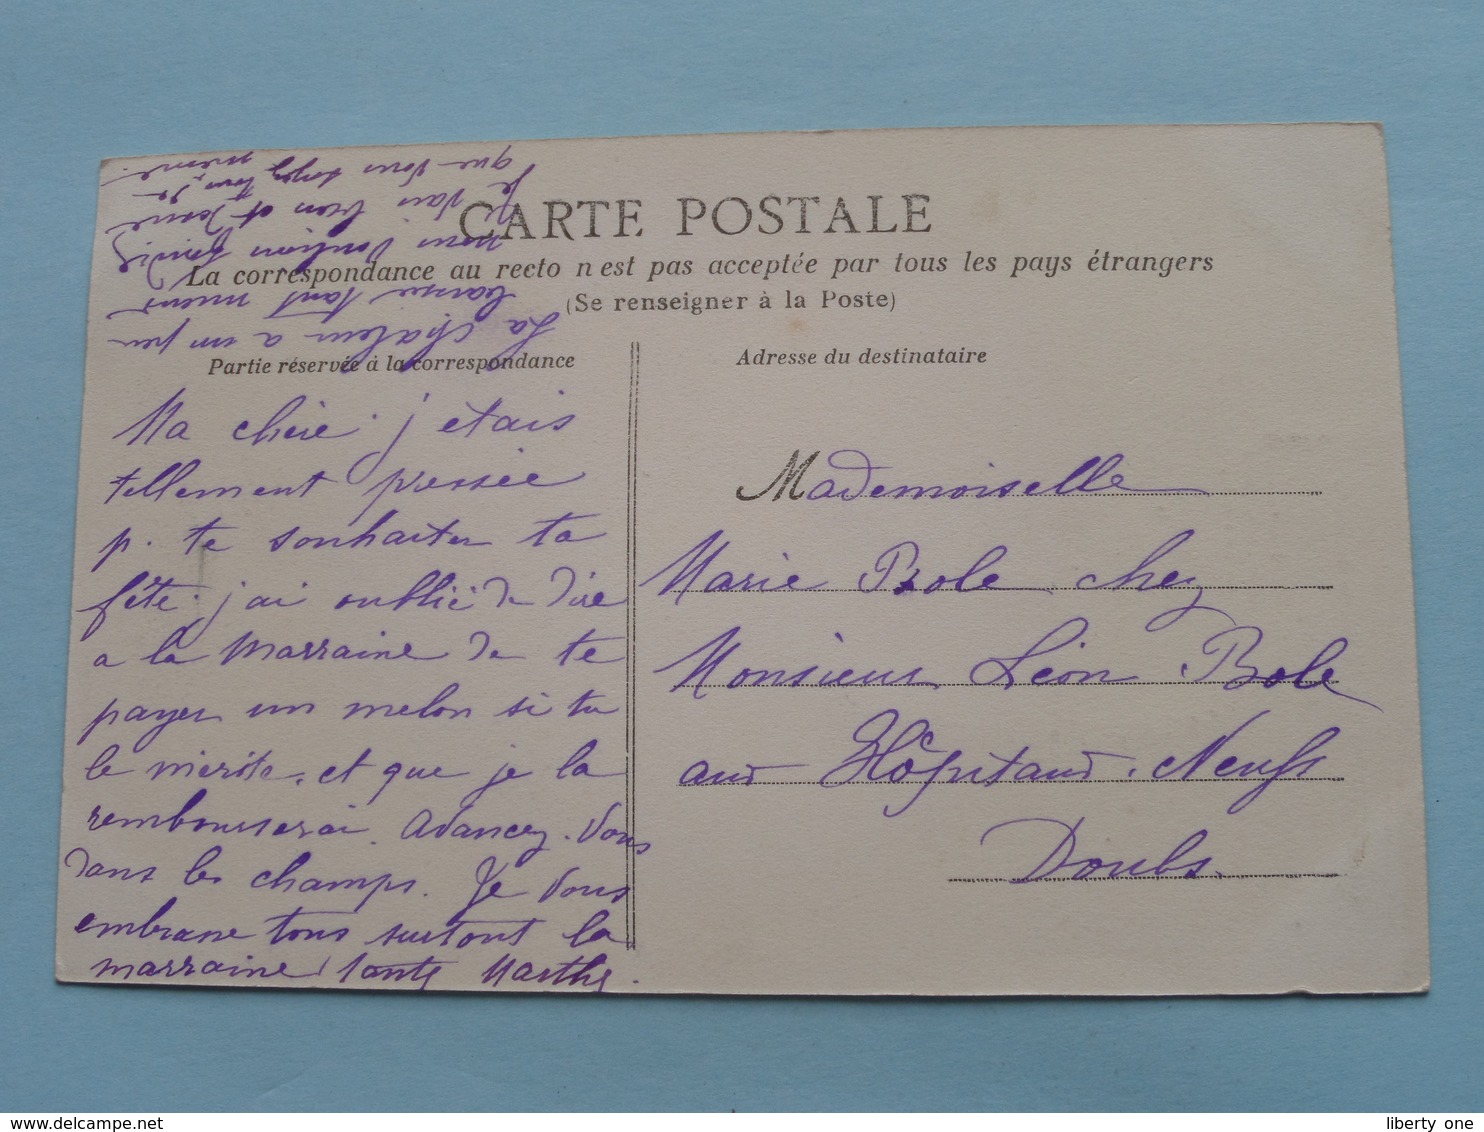 CARTE POSTALE
La correspondance au recto n'est pas acceptée par tous les pays étrangers
(Se renseigner à la Poste)
Partie réservée à la correspondance
Adresse du destinataire
Ma chérie j'étais
tellement pressée
p. te souhaiter ta
fête. j'ai oublié de dire
a la marraine de te
payer un melon si tu
le mérite. et que je la
rembourserai. Avancez. Vous
dans les champs. Je vous
embrasse tous surtout la
marraine Tante Marthe.
La chaleur a un peu
baissé tant mieux
nous voulions
Je vais bien et désire
que vous soyez tous de
même.
Mademoiselle
Marie Bole chez
Monsieur Léon Bole
aux Hôpitaux-Neufs
Doubs.
www.delcampe.net
liberty one